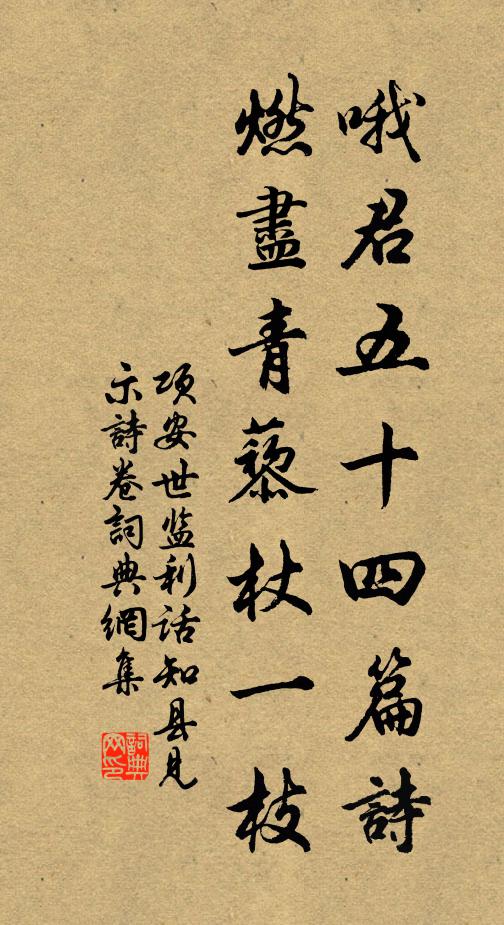 哦君五十四篇詩
燃盡青藜杖一枝
项安世监利話知县見
示詩卷詞典網集
詞典
网印